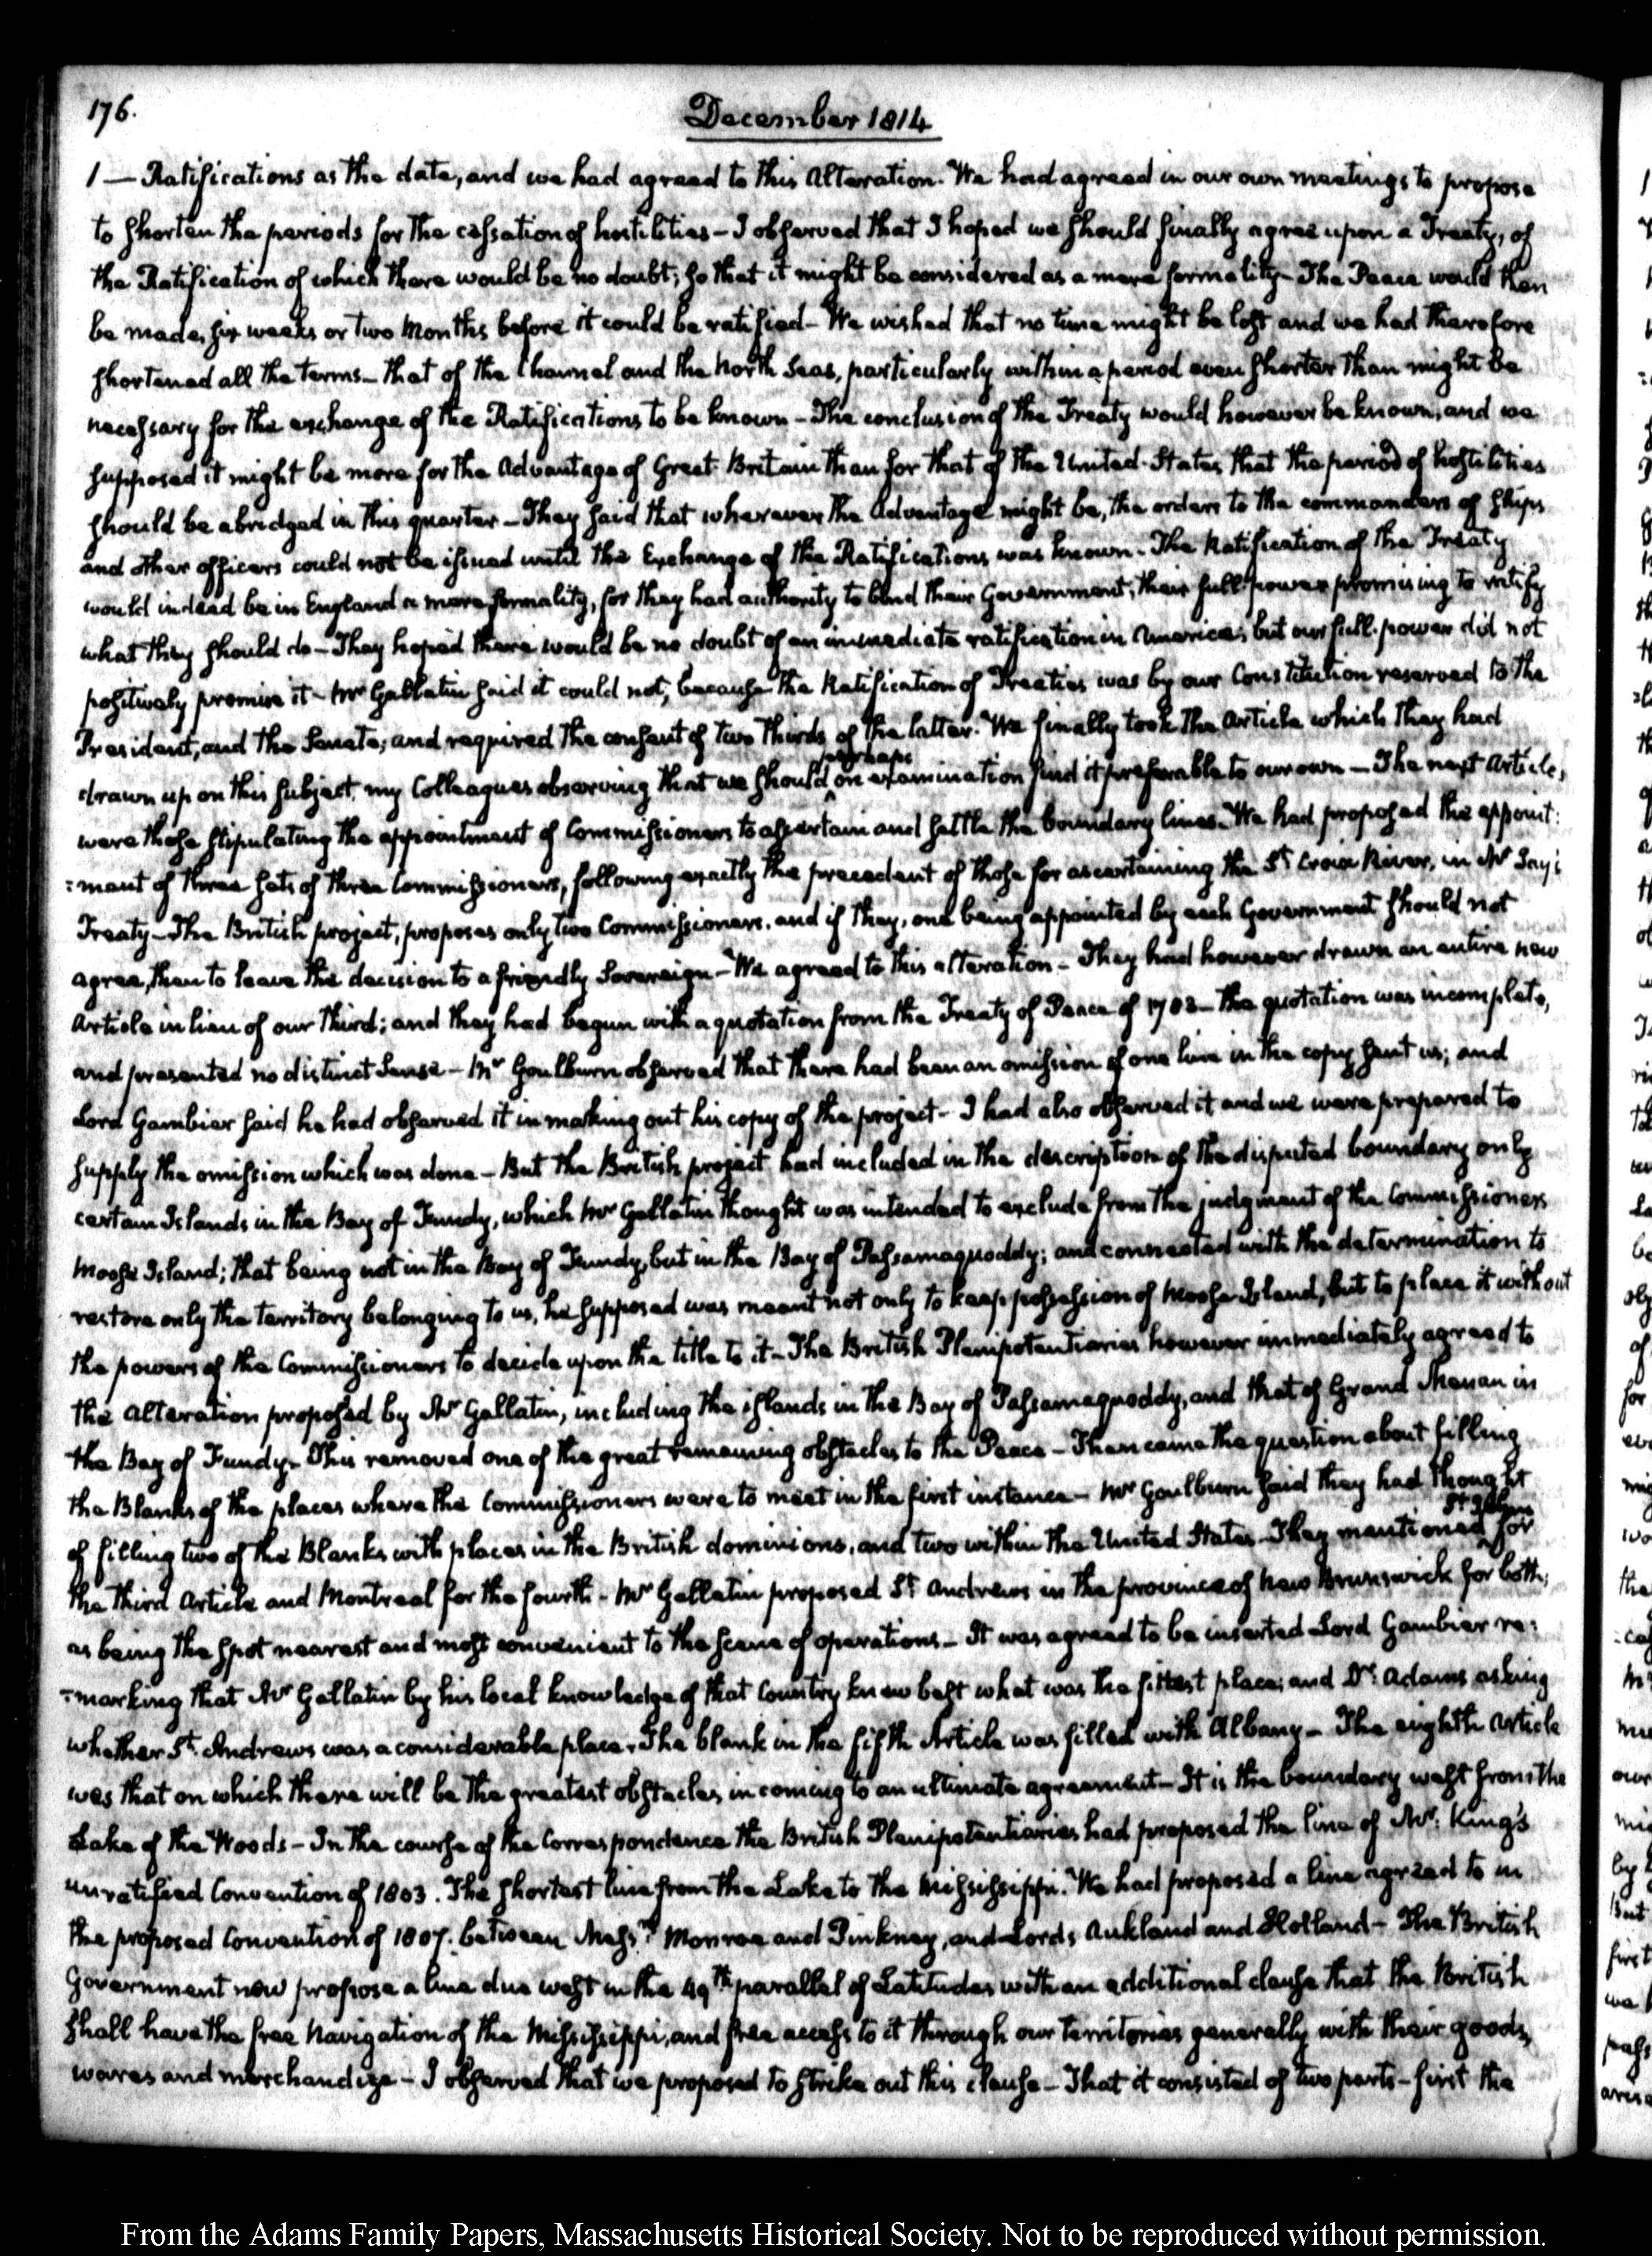 176.
December 1814
1 — Ratifications as the date, and we had agreed to this Alteration. We had agreed in our own meetings to propose
to shorten the periods for the cessation of hostilities - I observed that I hoped we should finally agree upon a Treaty, of
the Ratification of which there would be no doubt; so that it might be considered as a mere formality - The Peace would then
be made, six weeks or two Months before it could be ratified - We wished that no time might be lost and we had therefore
shortened all the terms - that of the Channel and the North Seas, particularly within a period even shorter than might be
necessary for the exchange of the Ratifications to be known - The conclusion of the Treaty would however be known, and we
supposed it might be more for the Advantage of Great-Britain than for that of the United States that the period of hostilities
should be abridged in this quarter - They said that wherever the Advantage might be, the orders to the commanders of ships
and other officers could not be issued until the Exchange of the Ratifications was known - The Ratification of the Treaty
would indeed be in England a mere formality, for they had authority to bind their Government; their full power promising to ratify
what they should do - They hoped there would be no doubt of an immediate ratification in America; but our full-power did not
positively promise it - Mr Gallatin said it could not, because the Ratification of Treaties was by our Constitution reserved to the
President, and the Senate, and required the consent of two thirds of the latter. We finally took the Article which they had
drawn up on this subject, my Colleagues observing that we should perhaps on examination find it preferable to our own — The next Articles,
were those stipulating the appointment of Commissioners to ascertain and settle the boundary lines. We had proposed the appoint:
:ment of three sets of three Commissioners, following exactly the precedent of those for ascertaining the St. Croix River, in Mr Jay's
Treaty - The British project, proposes only two Commissioners, and if they, one being appointed by each Government should not
agree, then to leave the decision to a friendly Sovereign - We agreed to this alteration - They had however drawn an entire new
Article in lieu of our third; and they had begun with a quotation from the Treaty of Peace of 1783 - the quotation was incomplete,
and presented no distinct Sense - Mr Goulburn observed that there had been an omission of one line in the copy sent us; and
Lord Gambier said he had observed it in making out his copy of the project - I had also observed it and we were prepared to
supply the omission which was done - But the British project had included in the description of the disputed boundary only
certain Islands in the Bay of Fundy, which Mr Gallatin thought was intended to exclude from the judgment of the Commissioners
Moose Island; that being not in the Bay of Fundy, but in the Bay of Passamaquoddy; and connected with the determination to
restore only the territory belonging to us, he supposed was meant not only to keep possession of Moose Island, but to place it without
the powers of the Commissioners to decide upon the title to it - The British Plenipotentiaries however immediately agreed to
the alteration proposed by Mr Gallatin, including the islands in the Bay of Passamaquoddy, and that of Grand Menan in
the Bay of Fundy - This removed one of the great remaining obstacles to the Peace - Then came the question about filling
the Blanks of the places where the Commissioners were to meet in the first instance - Mr Goulburn said they had thought
of filling two of the Blanks with places in the British dominions, and two within the United States. They mentioned St John for
the third Article and Montreal for the fourth - Mr Gallatin proposed St Andrews in the province of New Brunswick for both;
as being the spot nearest and most convenient to the scene of operations - It was agreed to be inserted Lord Gambier re:
:marking that Mr Gallatin by his local knowledge of that Country knew best what was the fittest place; and Dr. Adams asking
whether St. Andrews was a considerable place. The blank in the fifth Article was filled with Albany - The eighth Article
was that on which there will be the greatest obstacles in coming to an ultimate agreement - It is the boundary west from the
Lake of the Woods - In the course of the Correspondence the British Plenipotentiaries had proposed the line of Mr. King's
unratified Convention of 1803. The shortest line from the Lake to the Mississippi. We had proposed a line agreed to in
the proposed Convention of 1807. between Messrs Monroe and Pinkney, and Lords Aukland and Holland - The British
Government now propose a line due west in the 49th parallel of Latitudes with an additional clause that the British
shall have the free Navigation of the Mississippi, and free access to it through our territories generally with their goods,
wares and merchandize - I observed that we proposed to strike out this clause - That it consisted of two parts - first the
From the Adams Family Papers, Massachusetts Historical Society. Not to be reproduced without permission.